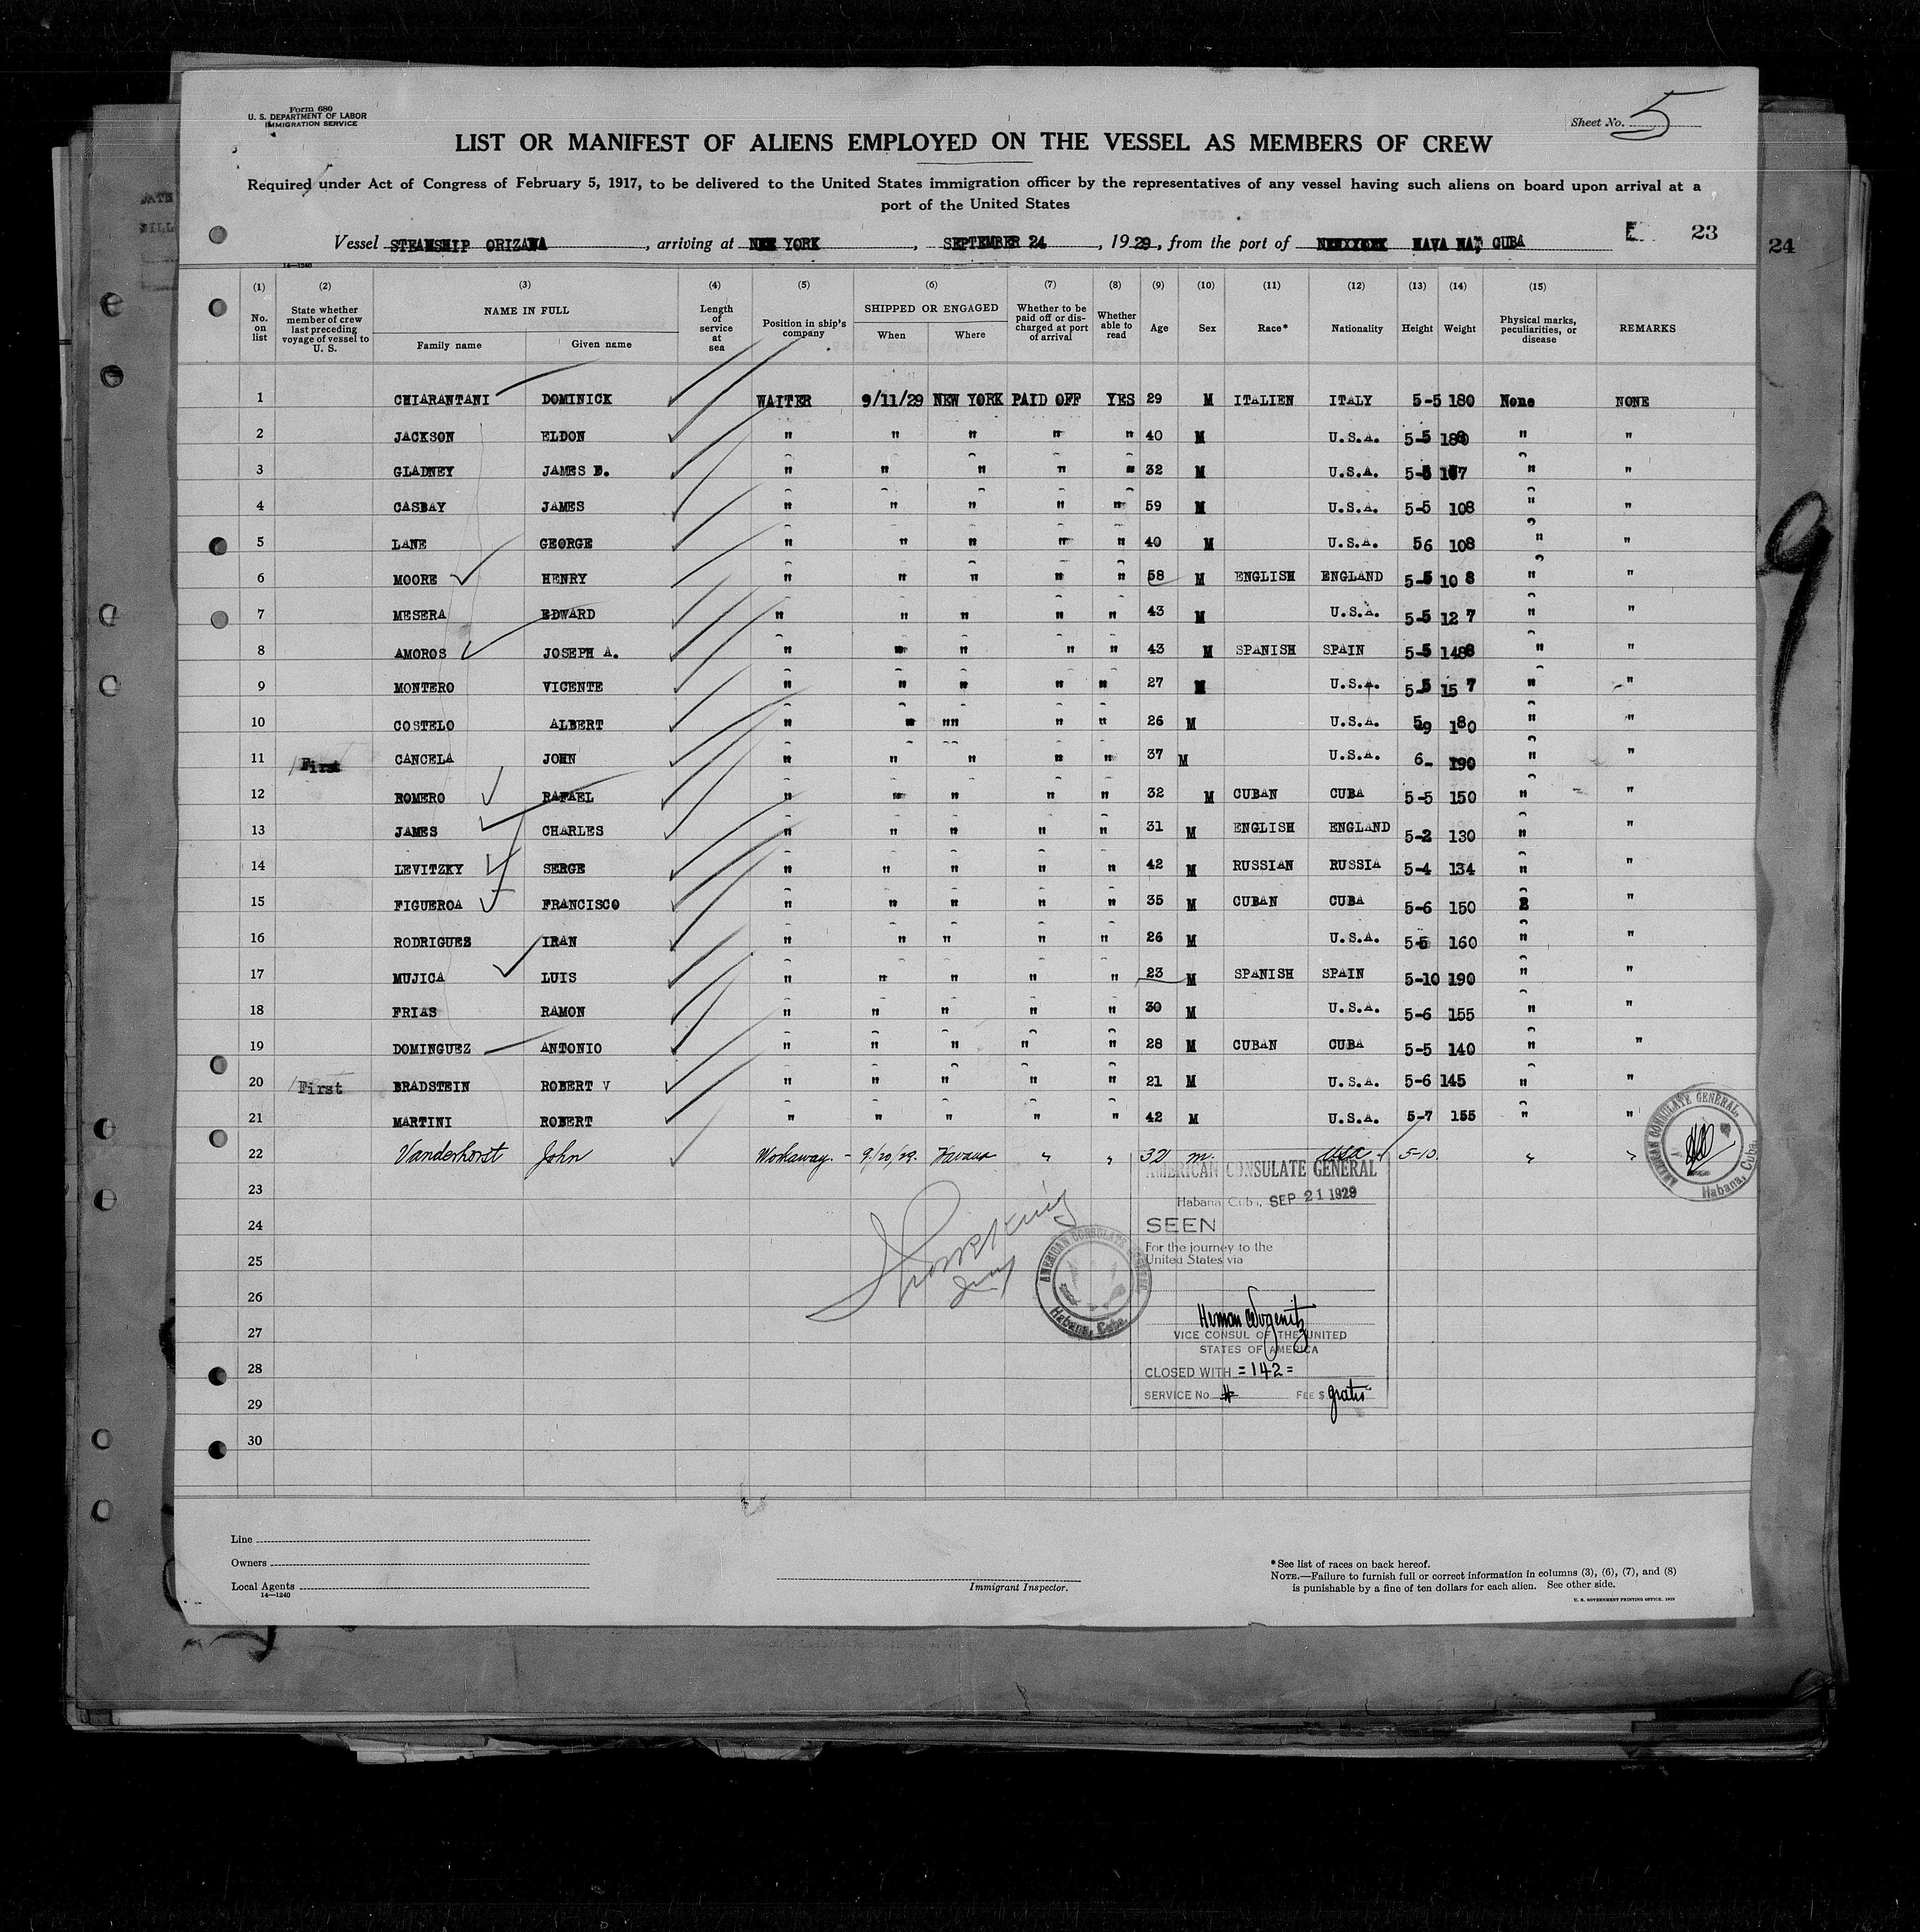 Form 680
U. S. DEPARTMENT OF LABOR
IMMIGRATION SERVICE
Sheet No. 5
LIST OR MANIFEST OF ALIENS EMPLOYED ON THE VESSEL AS MEMBERS OF CREW
Required under Act of Congress of February 5, 1917, to be delivered to the United States immigration officer by the representatives of any vessel having such aliens on board upon arrival at a
port of the United States
Vessel STEAMSHIP ORIZABA, arriving at NEW YORK, SEPTEMBER 24, 1929, from the port of HAVANA, CUBA
23
24
14—1240
(1) (2) (3) (4) (5) (6) (7) (8) (9) (10) (11) (12) (13) (14) (15)
No. on list State whether member of crew last preceding voyage of vessel to U. S. NAME IN FULL Family name Given name Length of service at sea Position in ship's company SHIPPED OR ENGAGED When Where Whether to be paid off or discharged at port of arrival Whether able to read Age Sex Race* Nationality Height Weight Physical marks, peculiarities, or disease REMARKS
1 CHIARANTANI DOMINICK WAITER 9/11/29 NEW YORK PAID OFF YES 29 M ITALIEN ITALY 5-5 180 None NONE
2 JACKSON ELDON " " " " " 40 M U.S.A. 5-5 " "
3 GLADNEY JAMES " " " " " 32 M U.S.A. " "
4 CASBAY JAMES " " " " " 59 M U.S.A. 5-5 108 " "
5 LANE GEORGE " " " " " 40 M U.S.A. 56 108 " "
6 MOORE HENRY " " " " " 58 M ENGLISH ENGLAND 5-5 10 8 " "
7 MESERA EDWARD " " " " " 43 M U.S.A. 5-5 12 7 " "
8 AMOROS JOSEPH A. " " " " " 43 M SPANISH SPAIN 5-5 " "
9 MONTERO VICENTE " " " " " 27 M U.S.A. 5-5 15 7 " "
10 COSTELO ALBERT " " "" " " 26 M U.S.A. 59 180 " "
11 First CANCELA JOHN " " " " " 37 M U.S.A. 6- 190 " "
12 ROMERO RAFAEL " " " " " 32 M CUBAN CUBA 5-5 150 " "
13 JAMES CHARLES " " " " " 31 M ENGLISH ENGLAND 5-2 130 " "
14 LEVITZKY SERGE " " " " " 42 M RUSSIAN RUSSIA 5-4 134 " "
15 FIGUEROA FRANCISCO " " " " " 35 M CUBAN CUBA 5-6 150 "
16 RODRIGUES IRAN " " " " " 26 M U.S.A. 160 " "
17 MUJICA LUIS " " " " " 23 M SPANISH SPAIN 5-10 190 " "
18 FRIAS RAMON " " " " " 30 M U.S.A. 5-6 155 " "
19 DOMINGUEZ ANTONIO " " " " " 28 M CUBAN CUBA 5-5 140 " "
20 First BRADSTEIN ROBERT V " " " " " 21 M U.S.A. 5-6 145 " "
21 MARTINI ROBERT " " " " " 42 M U.S.A. 5-7 155 " "
22 Vanderhorst John Workaway. - 9/20/29. Havana " " 32 m. USA 5-10. " "
23
24
25
26
27
28
29
30
AMERICAN CONSULATE GENERAL
Habana, Cuba, SEP 21 1929
SEEN
For the journey to the
United States via
VICE CONSUL OF THE UNITED
STATES OF AMERICA
CLOSED WITH =142=
SERVICE No. # FEE $ gratis
AMERICAN CONSULATE GENERAL, Habana, Cuba.
AMERICAN CONSULATE GENERAL, Habana, Cuba.
9
Line
Owners
Local Agents
14—1240
Immigrant Inspector.
*See list of races on back hereof.
NOTE.—Failure to furnish full or correct information in columns (3), (6), (7), and (8)
is punishable by a fine of ten dollars for each alien. See other side.
U. S. GOVERNMENT PRINTING OFFICE. 1929